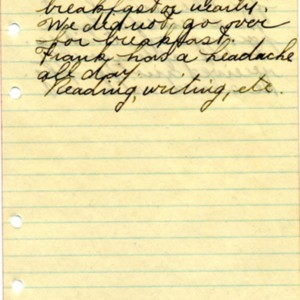 breakfast or nearly.
We did not go over
for breakfast.
Frank has a headache
all day.
Reading, writing, etc.